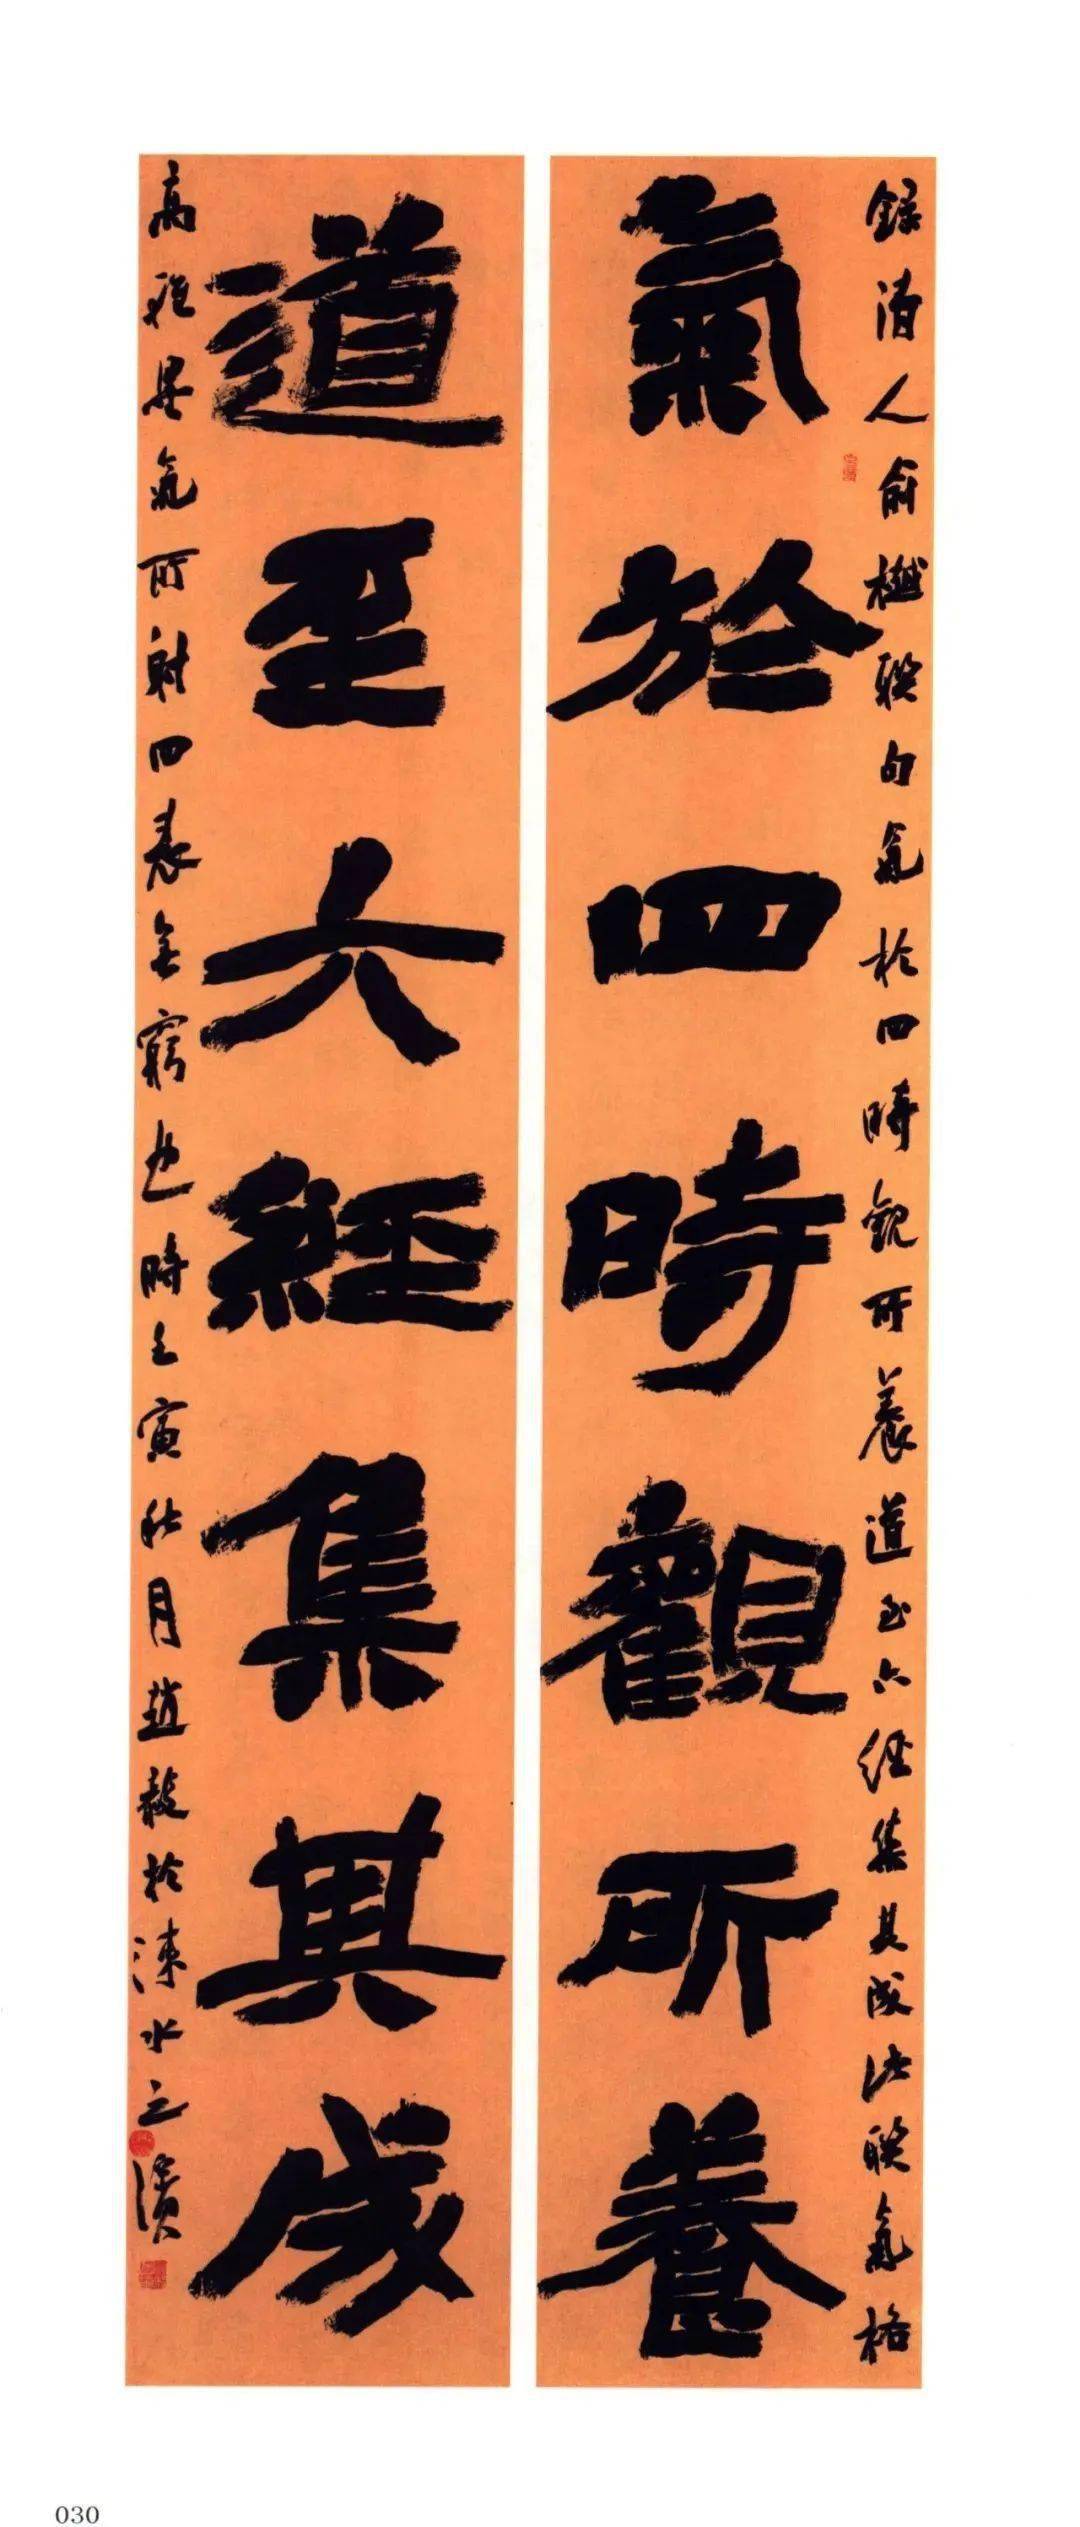 錄清人俞樾聯句氣於四時觀所養道至六經集其成此聯氣格
氣於四時觀所養
道至六經集其成
高 氣所射四表無窮也時壬寅秋月趙毅於涑水之濱
030